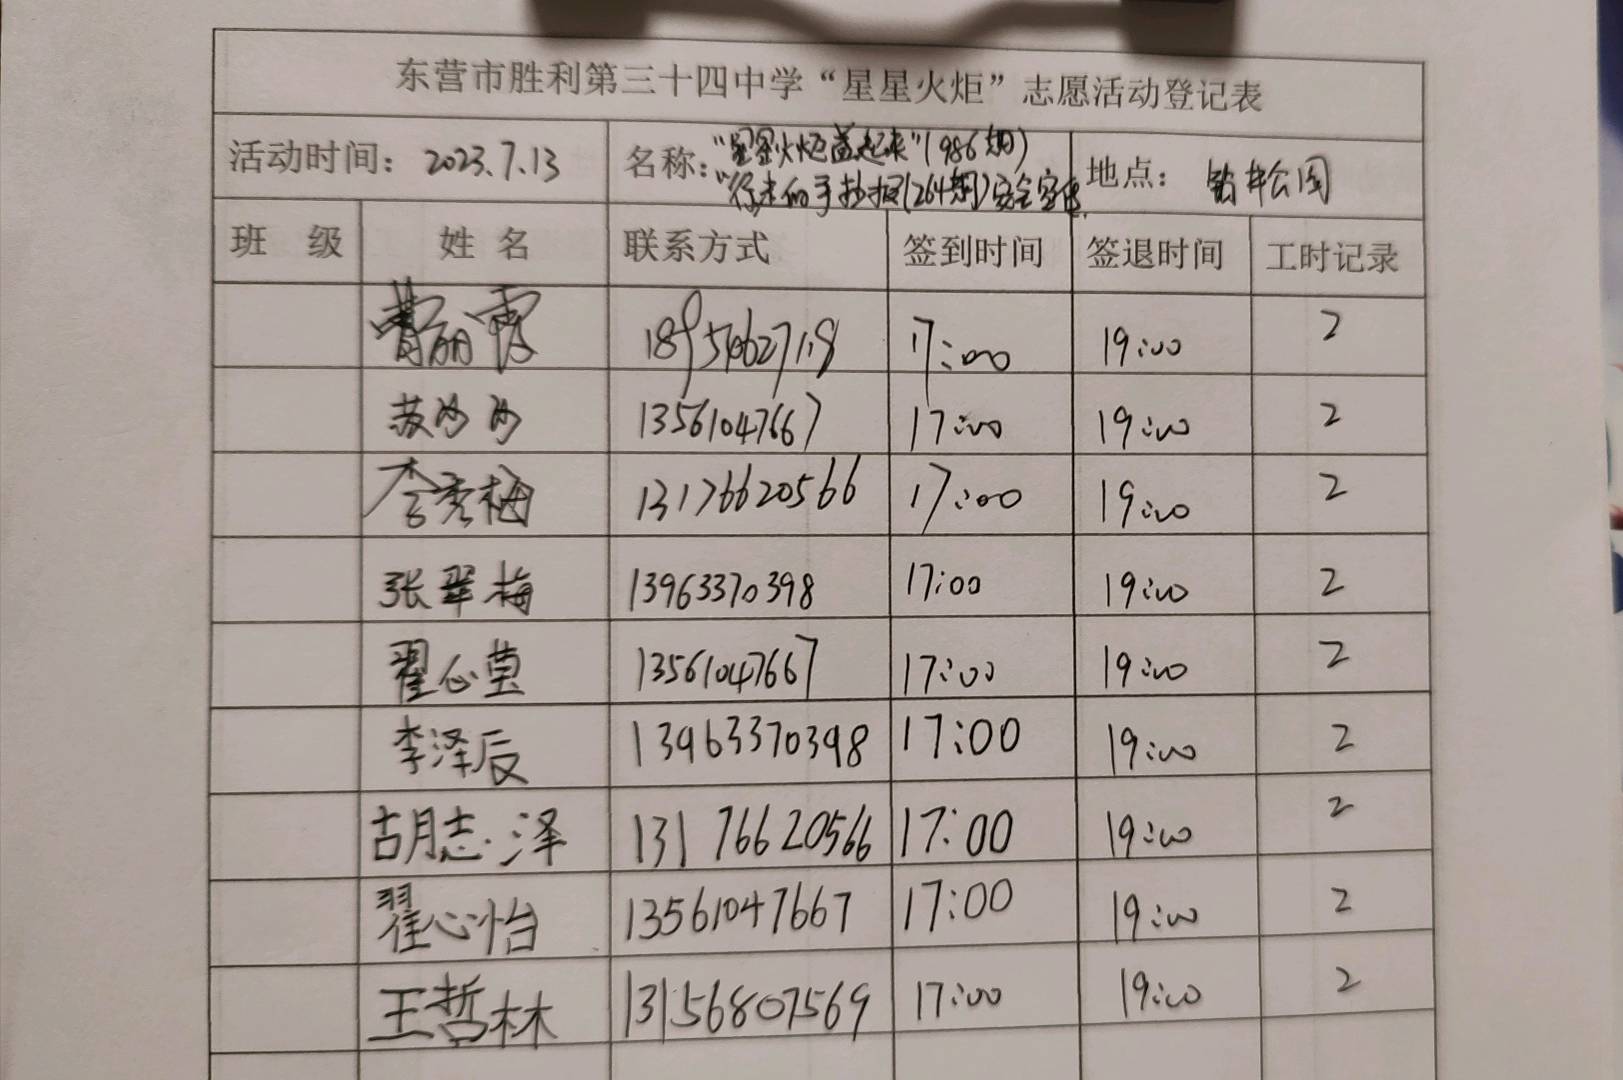 东营市胜利第三十四中学“星星火炬”志愿活动登记表
活动时间：2023.7.13 名称：“星星火炬益起来”(986期) 地点：钻井公园
“行走的手抄报(264期)安全宣传
班 级 姓 名 联系方式 签到时间 签退时间 工时记录
曹丽霞 17:00 19:00 2
苏沙沙 13561047667 17:00 19:00 2
李秀梅 13176620566 17:00 19:00 2
张翠梅 13963370398 17:00 19:00 2
翟心莹 13561047667 17:00 19:00 2
李泽辰 13963370398 17:00 19:00 2
胡志泽 13176620566 17:00 19:00 2
翟心怡 13561047667 17:00 19:00 2
王哲林 13156807569 17:00 19:00 2